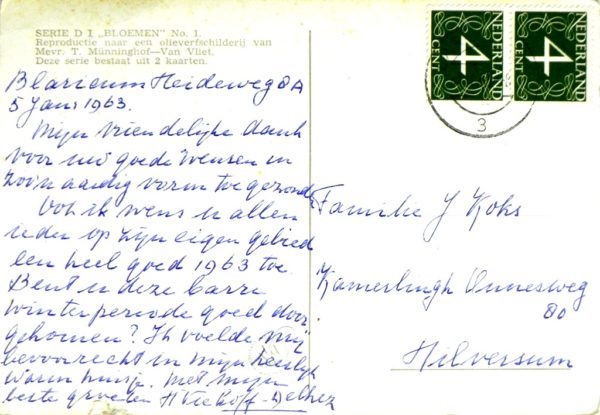 SERIE D I „BLOEMEN" No. 1.
Reproductie naar een olieverfschilderij van
Mevr. T. Münninghof—Van Vliet.
Deze serie bestaat uit 2 kaarten.
Blaricum Heideweg 8A
5 Janri 1963.
Mijn vriendelijke dank
voor uw goede wensen in
zoo'n aardig vorm toegezonden
Ook ik wens u allen
ieder op zijn eigen gebied
een heel goed 1963 toe
Bent u deze barre
winterperiode goed door
gekomen? Ik voelde mij
bevoorrecht in mijn heerlijk
warm huisje. Met mijn
beste groeten H
NEDERLAND
4
CENT
NEDERLAND
4
CENT
3
Familie J Koks
Kamerlingh Onnesweg
80
Hilversum